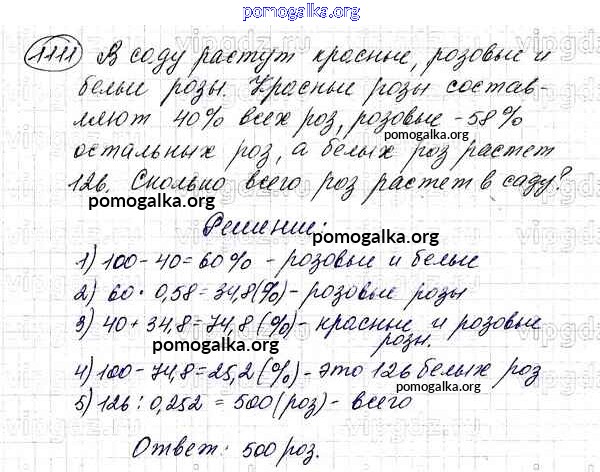 pomogalka.org
1111 В саду растут красные, розовые и
белые розы. Красные розы состав-
ляют 40% всех роз, розовые - 58%
pomogalka.org
остальных роз, а белых роз растет
126. Сколько всего роз растет в саду?
pomogalka.org
Решение:
pomogalka.org
1) 100 - 40 = 60% - розовые и белые
2) 60 · 0,58 = 34,8 (%) - розовые розы
3) 40 + 34,8 = 74,8 (%) - красные и розовые
розы.
pomogalka.org
4) 100 - 74,8 = 25,2 (%) - это 126 белых роз
pomogalka.org
5) 126 : 0,252 = 500 (роз) - всего
Ответ: 500 роз.